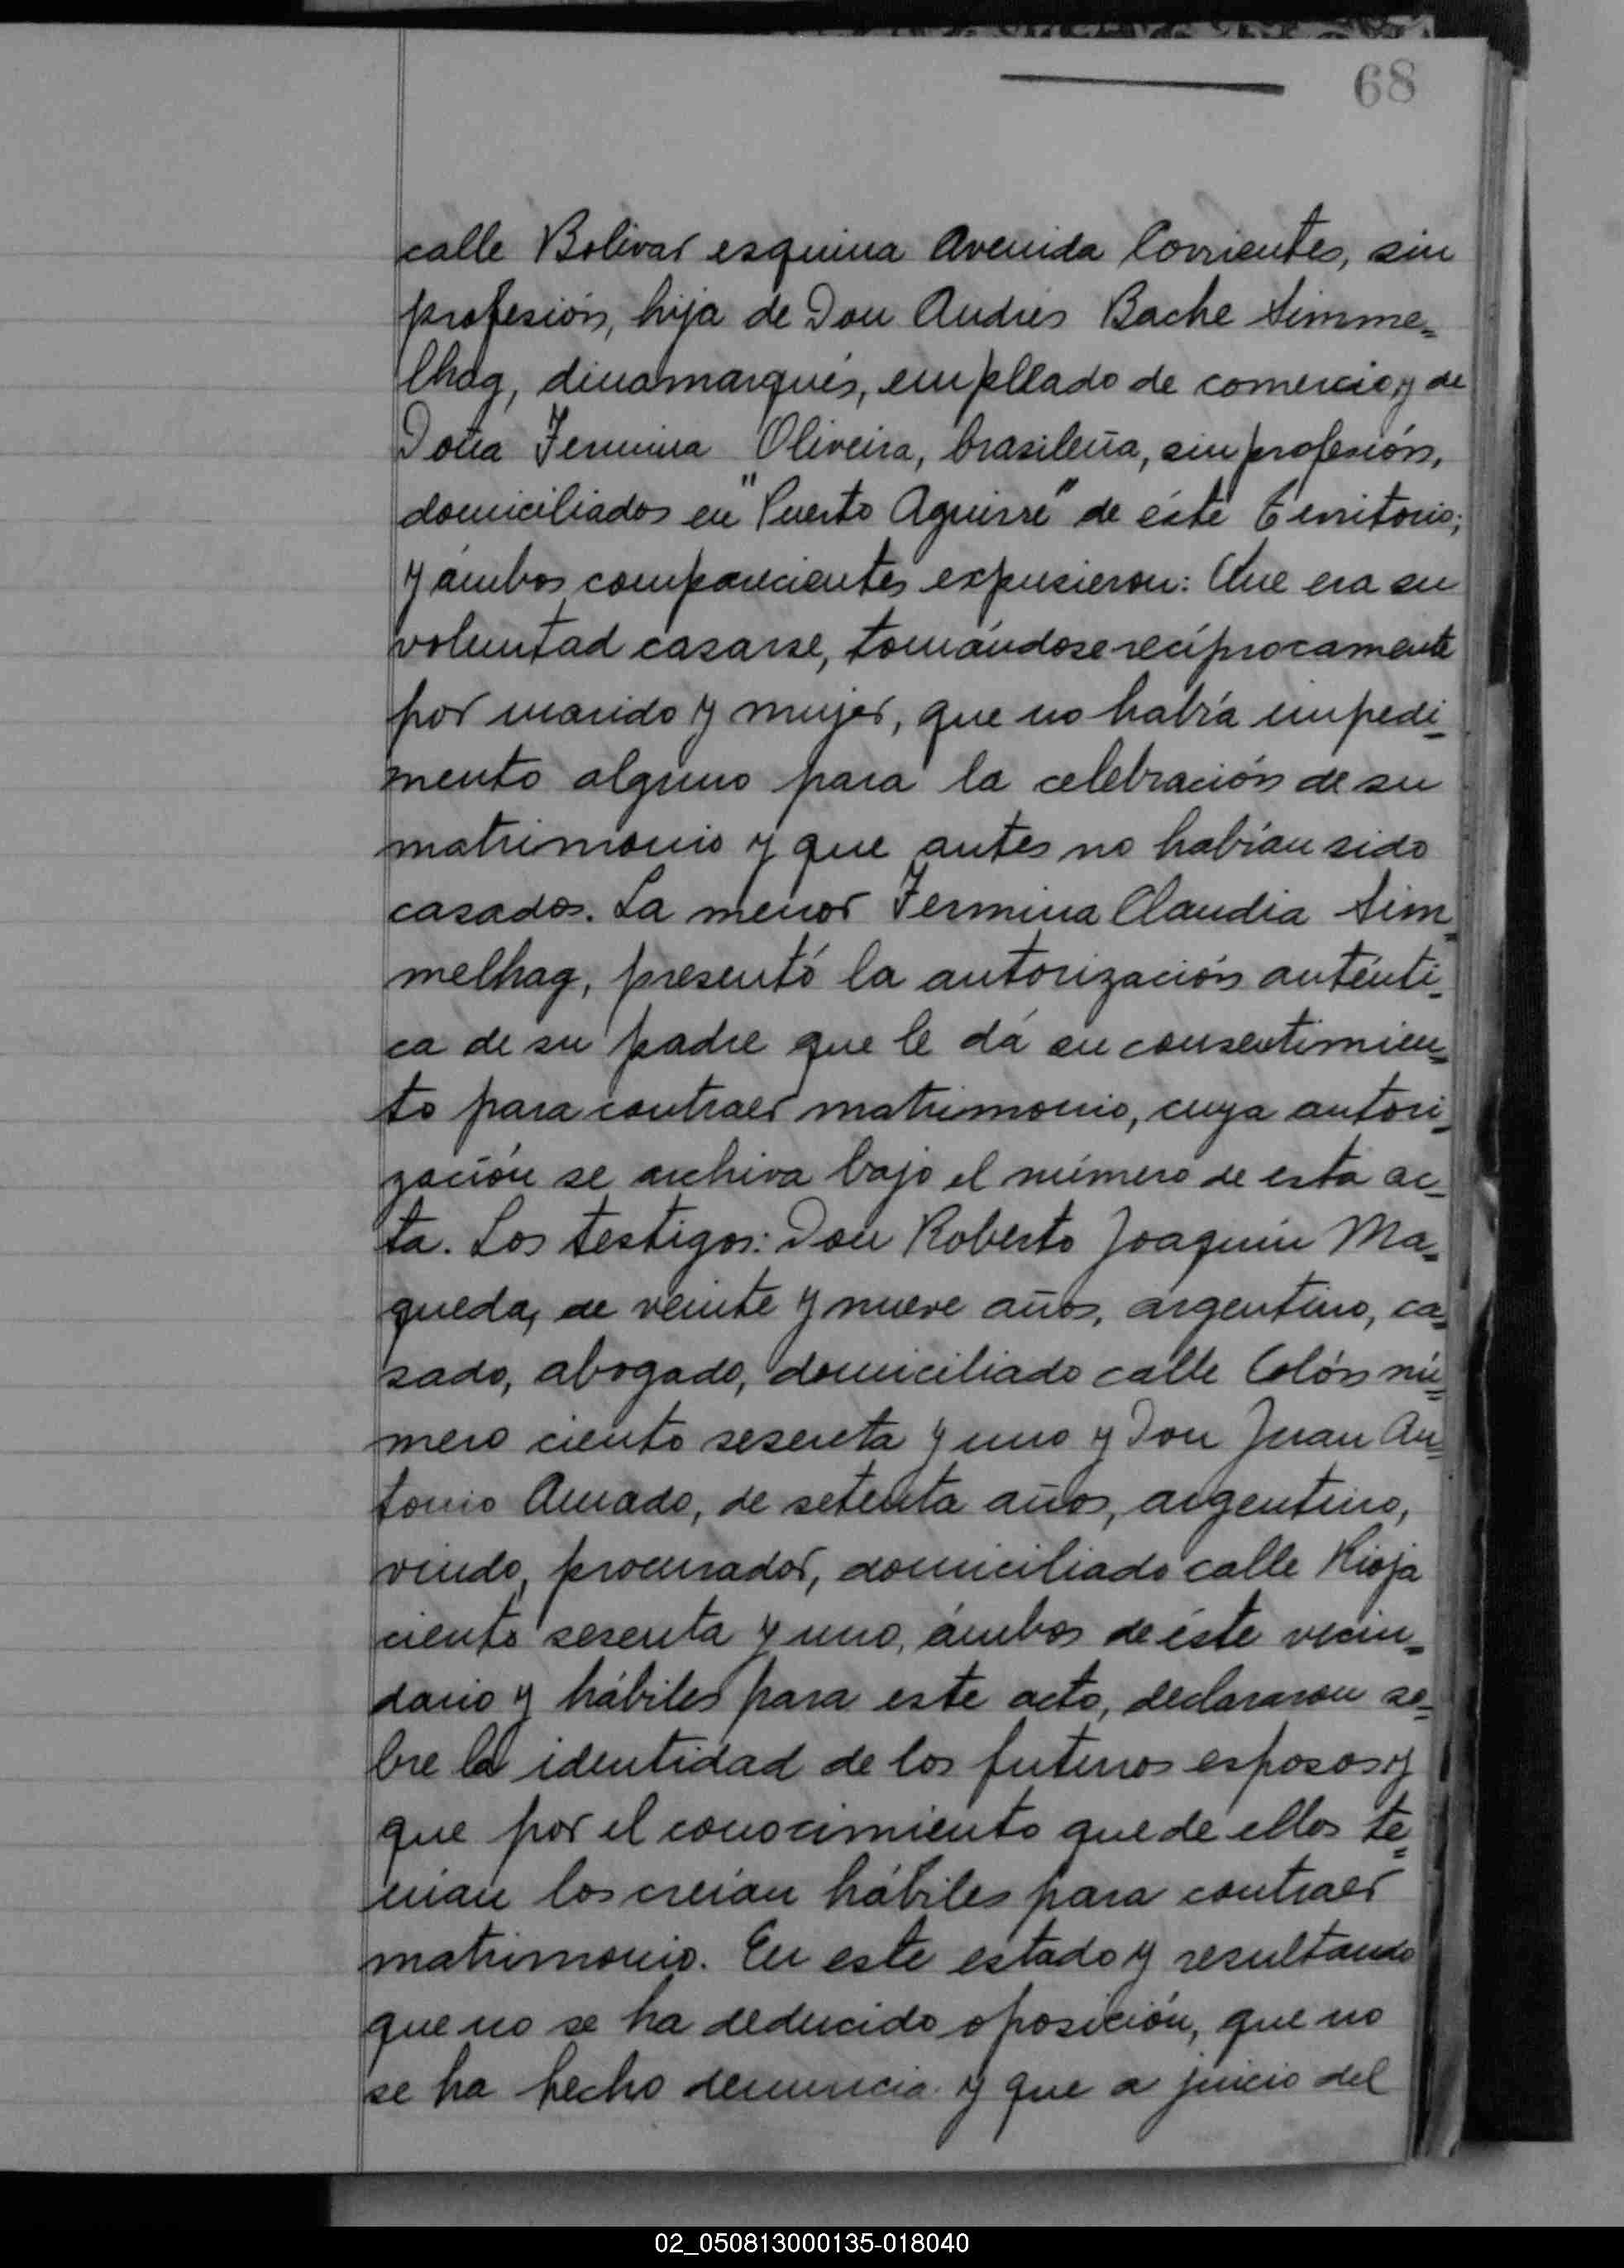 68
calle Bolivar esquina Avenida Corrientes, sin
profesión, hija de Don Andrés Bache Simme=
lhag, dinamarqués, empleado de comercio, y de
Doña Fermina Oliveira, brasileña, sin profesión,
domiciliados en "Puerto Aguirre" de éste Territorio;
y ámbos comparecientes expusieron: Que era su
voluntad casarse, tomándose recíprocamente
por marido y mujer, que no había impedi-
mento alguno para la celebración de su
matrimonio y que antes no habían sido
casados. La menor Fermina Claudia Sim=
melhag, presentó la autorización auténti-
ca de su padre que le dá su consentimien=
to para contraer matrimonio, cuya autori-
zación se archiva bajo el número de esta ac=
ta. Los testigos: Don Roberto Joaquín Ma=
queda, de veinte y nueve años, argentino, ca=
sado, abogado, domiciliado calle Colón nú=
mero ciento sesenta y uno y Don Juan An=
tonio Amado, de setenta años, argentino,
viudo, procurador, domiciliado calle Rioja
ciento sesenta y uno, ámbos de éste vecin=
dario y hábiles para este acto, declararon so=
bre la identidad de los futuros esposos y
que por el conocimiento que de ellos te=
nían los creían hábiles para contraer
matrimonio. En este estado y resultando
que no se ha deducido oposición, que no
se ha hecho denuncia y que a juicio del
02_050813000135-018040